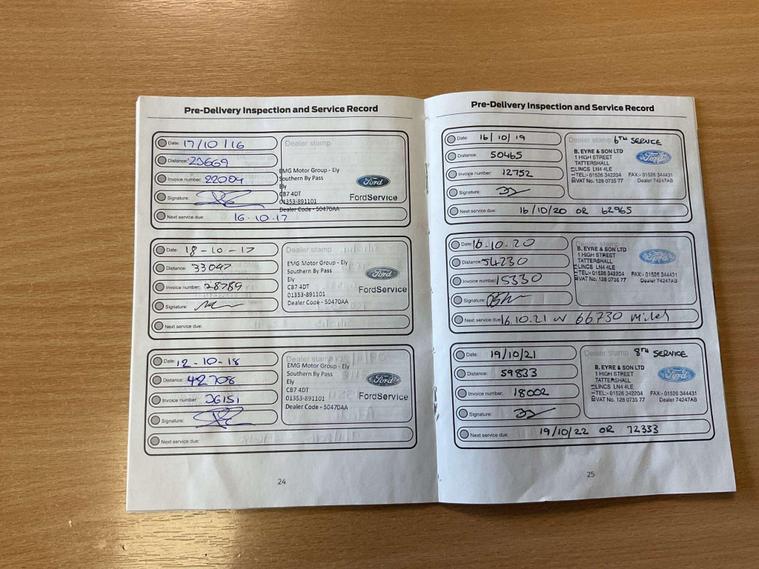 Pre-Delivery Inspection and Service Record
Date: 17/10/16
Distance: 23669
Invoice number: 22004
Signature:
Next service due: 16.10.17
Dealer stamp
EMG Motor Group - Ely
Southern By Pass
Ely
CB7 4DT
01353-891101
Dealer Code - 50470AA
Ford
FordService
Date: 18-10-17
Distance: 33097
Invoice number: 28789
Signature:
Next service due:
Dealer stamp
EMG Motor Group - Ely
Southern By Pass
Ely
CB7 4DT
01353-891101
Dealer Code - 50470AA
Ford
FordService
Date: 12-10-18
Distance: 42706
Invoice number: 36151
Signature:
Next service due:
Dealer stamp
EMG Motor Group - Ely
Southern By Pass
Ely
CB7 4DT
01353-891101
Dealer Code - 50470AA
Ford
FordService
24
Pre-Delivery Inspection and Service Record
Date: 16/10/19
Distance: 50465
Invoice number: 12752
Signature:
Next service due: 16/10/20 OR 62965
Dealer stamp 6TH SERVICE
B. EYRE & SON LTD
1 HIGH STREET
TATTERSHALL
LINCS LN4 4LE
TEL:- 01526 342204 FAX:- 01526 344431
VAT No. 128 0735 77 Dealer 74247AB
Ford
Date: 16.10.20
Distance: 54230
Invoice number: 15330
Signature:
Next service due: 16.10.21 or 66730 miles
Dealer stamp
B. EYRE & SON LTD
1 HIGH STREET
TATTERSHALL
LINCS LN4 4LE
TEL:- 01526 342204 FAX:- 01526 344431
VAT No. 128 0735 77 Dealer 74247AB
Ford
Date: 19/10/21
Distance: 59833
Invoice number: 18002
Signature:
Next service due: 19/10/22 OR 72333
Dealer stamp 8TH SERVICE
B. EYRE & SON LTD
1 HIGH STREET
TATTERSHALL
LINCS LN4 4LE
TEL:- 01526 342204 FAX:- 01526 344431
VAT No. 128 0735 77 Dealer 74247AB
Ford
25